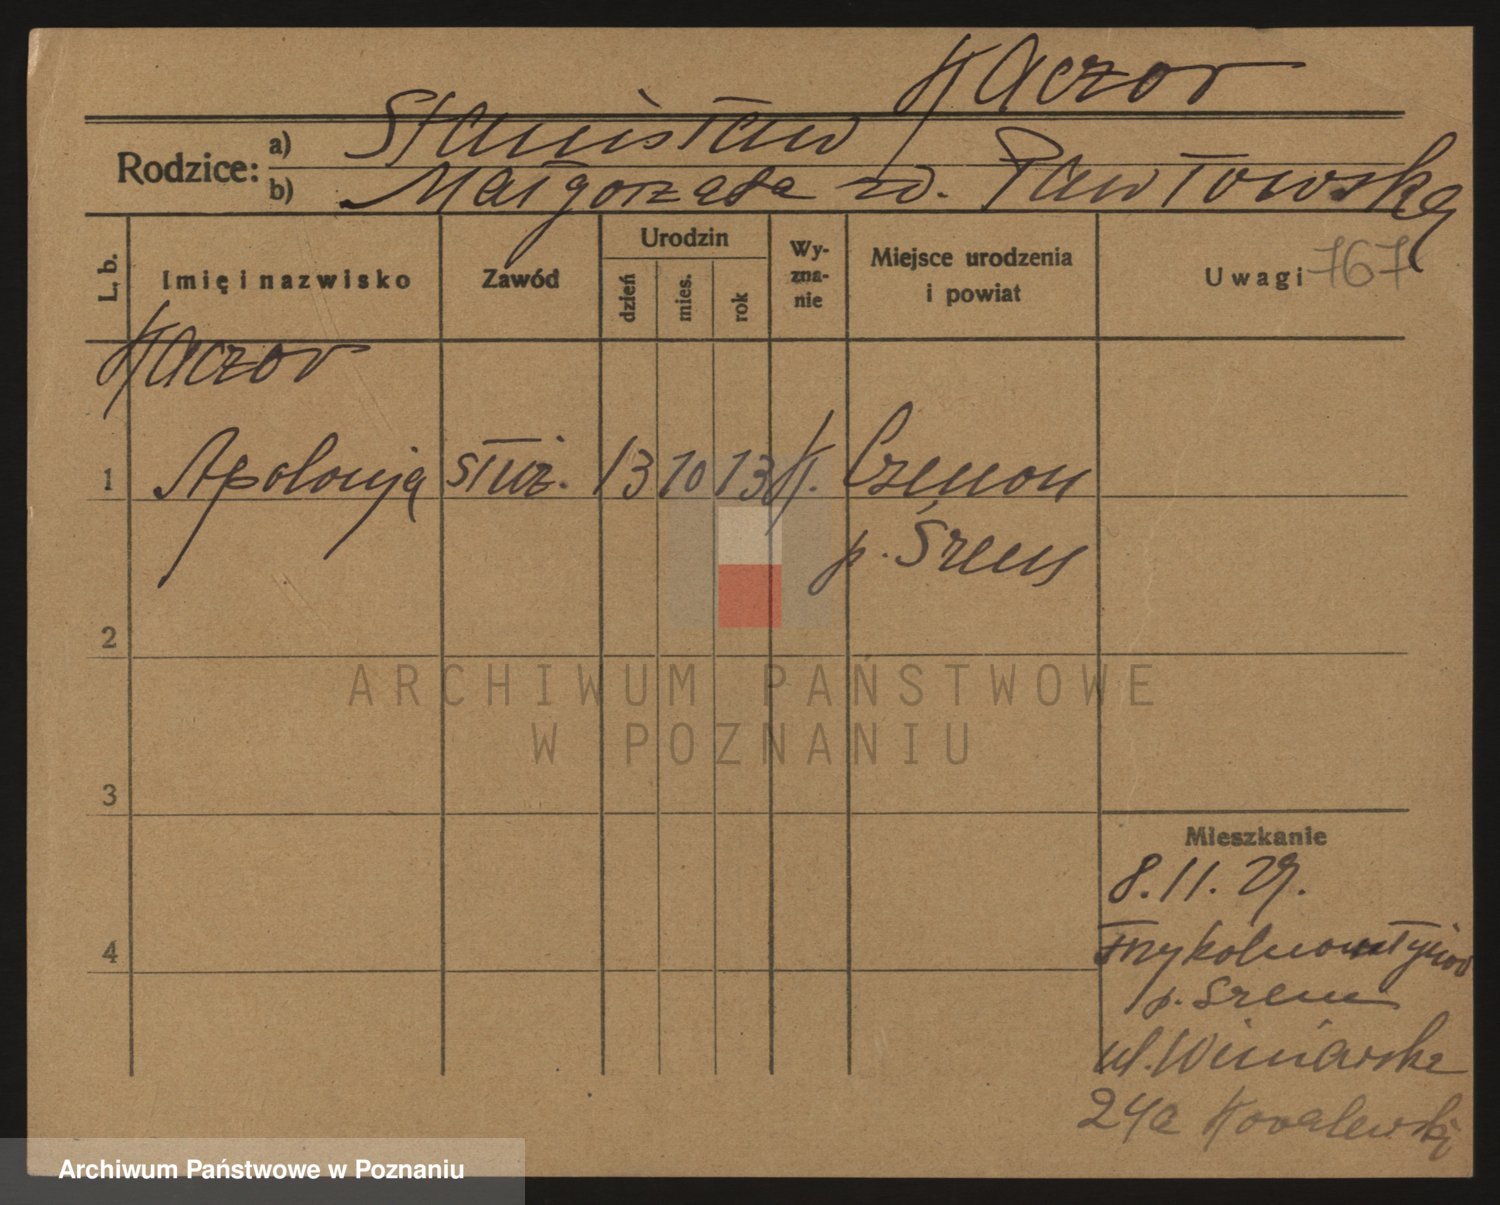 Kaczor
Rodzice: a) Stanisław
b) Małgorzata zd. Pawłowska
L. b.
Imię i nazwisko
Zawód
Urodzin
dzień
mies.
rok
Wy-
zna-
nie
Miejsce urodzenia
i powiat
Uwagi 767
Kaczor
1 Apolonja służ. 13 10 13 K. Czmoń
p. Śrem
2
ARCHIWUM PAŃSTWOWE
W POZNANIU
3
Mieszkanie
8.11.29.
4
p. Srem
ul. Winiarska
24a Kowalewski
Archiwum Państwowe w Poznaniu